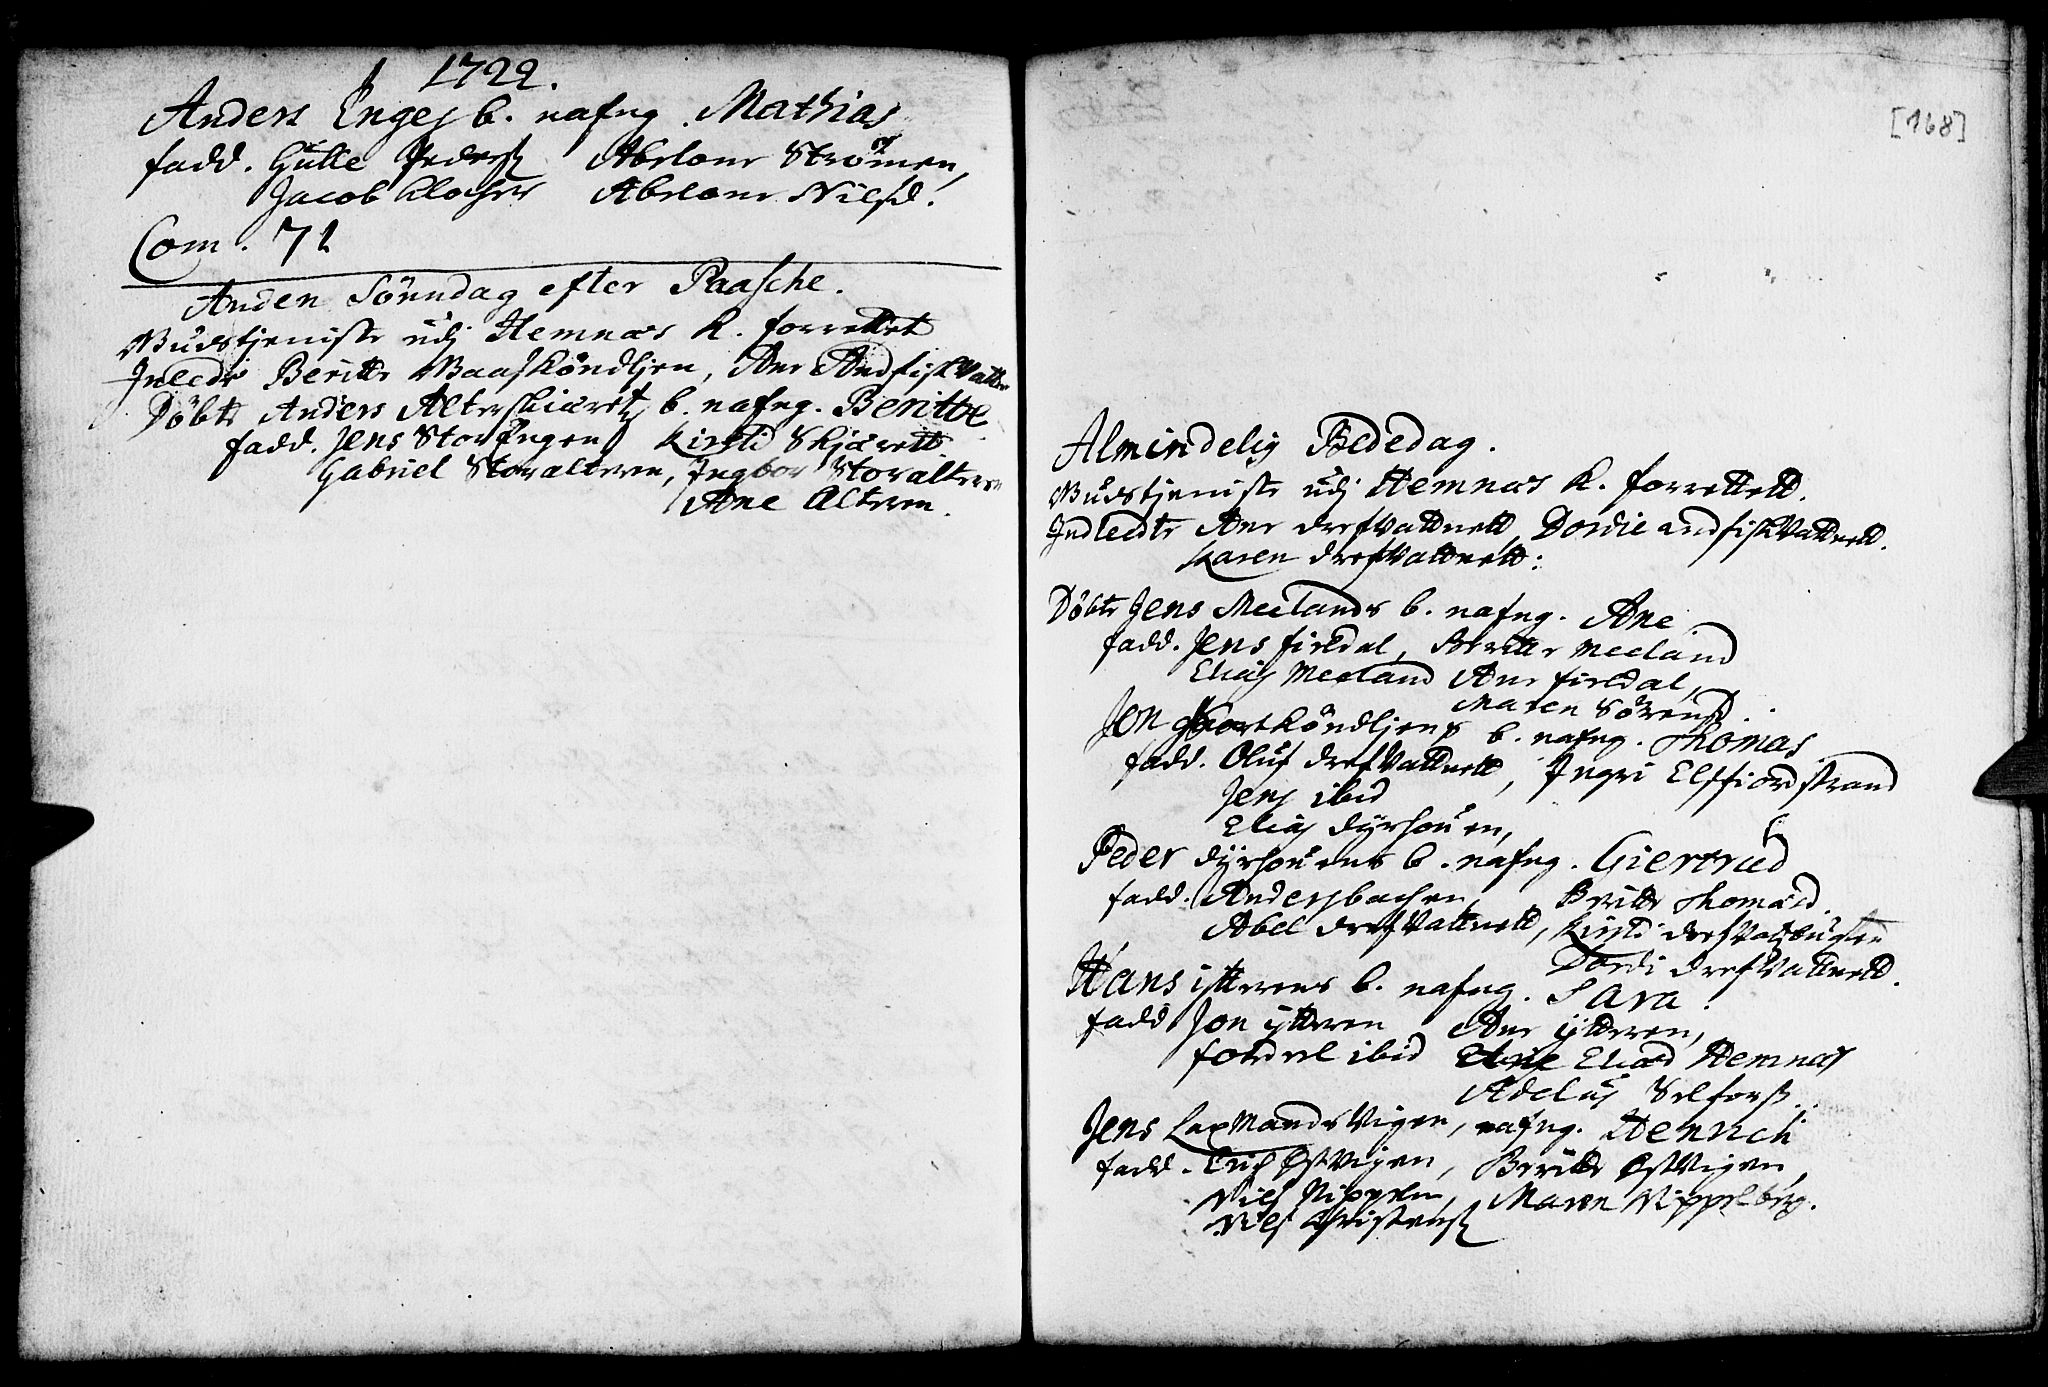 1722.
Anders Enges b. nafng. Mathias
fadd. Gulle Peders Abelone Strømen,
Jacob Klocher Abelone Nilsd.
Com. 71
Anden Sönndag efter Paasche.
Gudstjeniste udj Hemnæs K. forrettet
Inledt Beritte Baasköndlien, Ane Andfiskvatten
Döbt Anders Alterskiærets b. nafng. Beritte
fadd. Jens StorEngen Kirsti Skjærett
Gabriel Storalteren, Ingbor Storalteren
Ane Alteren.
[168]
Almindelig Bededag.
Gudstjeniste udj Hemnæs K. forrettett.
Indledte Ane drefVattnett, Dordie andfiskVattnett.
Karen drefVattnett:
Döbte Jens Meelands b. nafng. Ane
fadd. Jens fireldal, Beritte Meeland
Elias Meeland Ane fireldal,
Maren Sörensd.
Jon Kortköndliens b. nafng. Thomas
fadd. Oluf drefVattnett, Ingri Elsfiordstrand
Jens ibid
Elias dyrhouen,
Peder dyrhouens b. nafng. Giertrud
fadd. Andersbachen, Beritte Thomasd.
Abel drefVattnett, Kirsti drefVatzbugten
Dordi drefVattnett.
Hans itterens b. nafng. Sara.
fadd Jon ytteren Ane ytteren,
fordel ibid Eliasd Hemnæs
Adelus Selforss.
Jens LaxMandsVigen, nafng. Henrich
fadd. Erich ØstVigen, Beritte ØstVigen,
Niels Nippelen, Maren Nippelberg.
Niels Christens